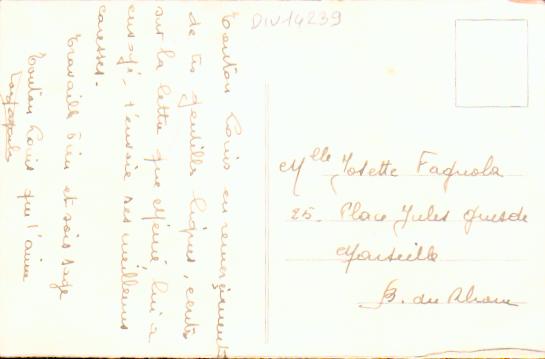 DIV14239
Tonton Louis en remerciement
de tes gentilles lignes, écrites
sur la lettre que Mémé lui a
envoyé, t'envoie ses meilleures
caresses.
Travaille bien et sois sage
Tonton Louis qui t'aime
Mlle Josette Fagnola
25. Place Jules Guesde
Marseille
B. du Rhône